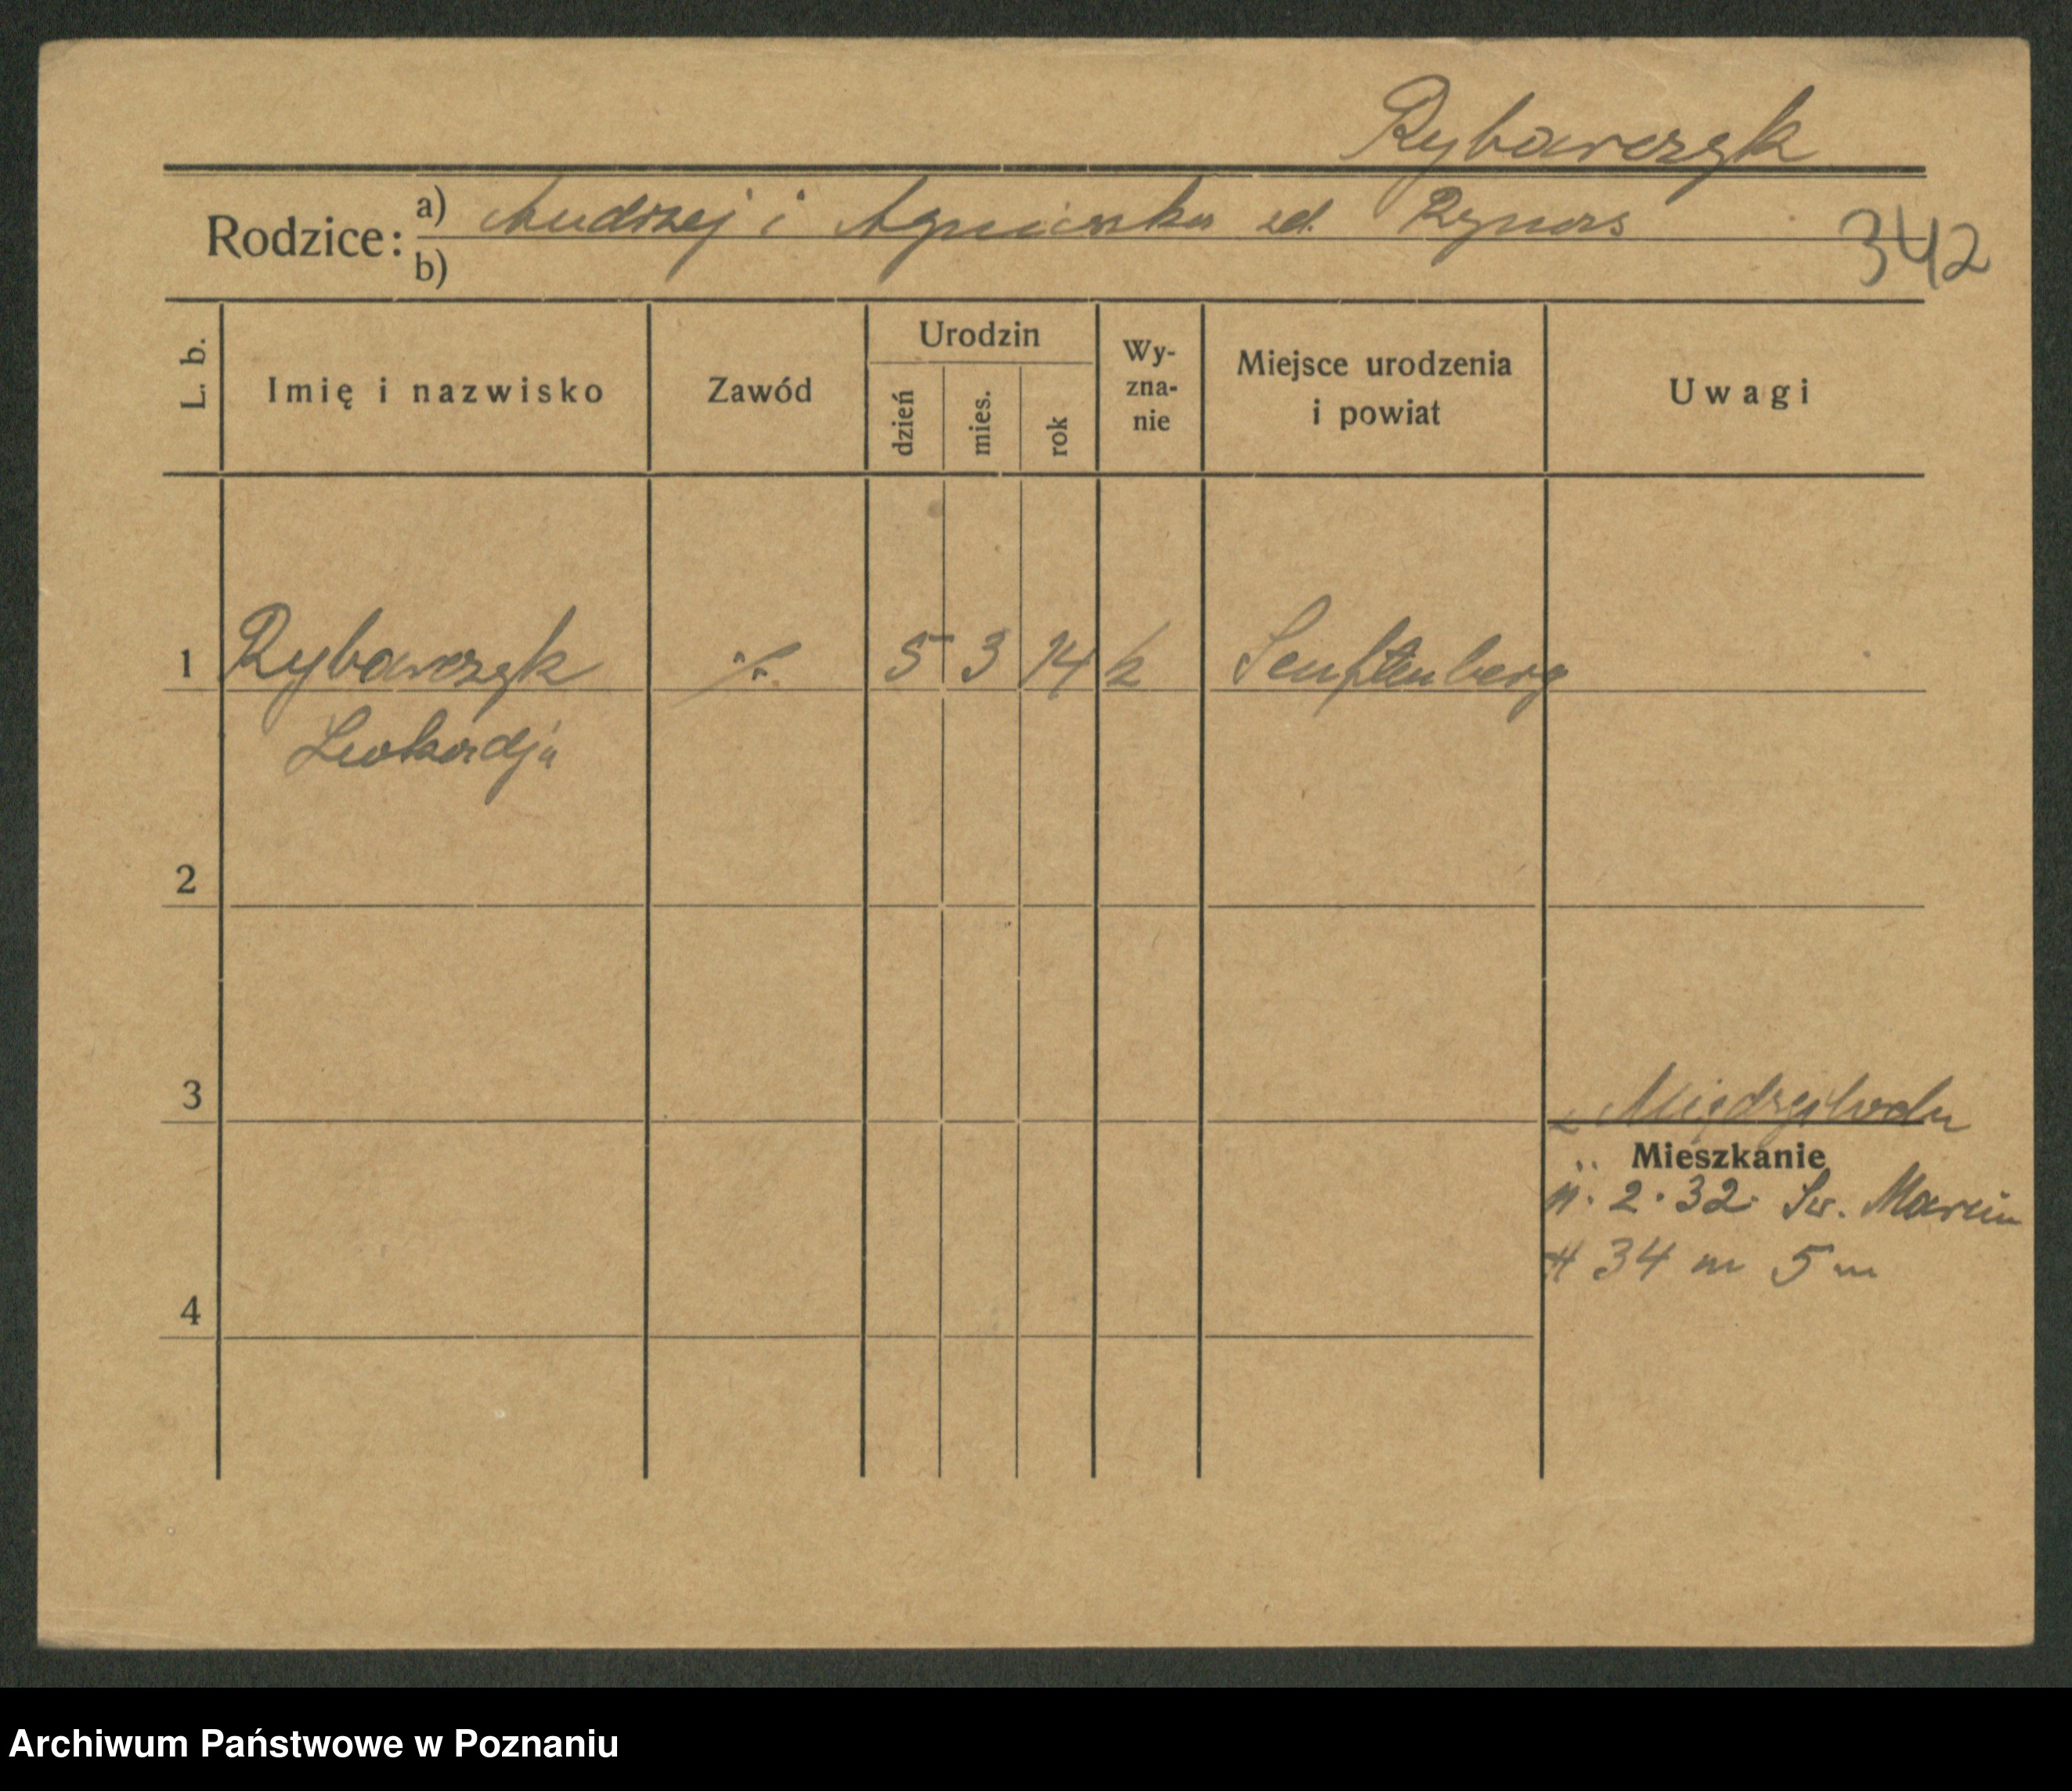 Rybarczyk
Rodzice: a) Andrzej i Agnieszka zd.
b)
342
L. b.
Imię i nazwisko
Zawód
Urodzin
dzień
mies.
rok
Wy-
zna-
nie
Miejsce urodzenia
i powiat
Uwagi
1 Rybarczyk ./. 5 3 14 k Senftenberg
Leokadja
2
3
z Międzychodu
Mieszkanie
11. 2. 32. Św. Marcin
34 m 5
4
Archiwum Państwowe w Poznaniu